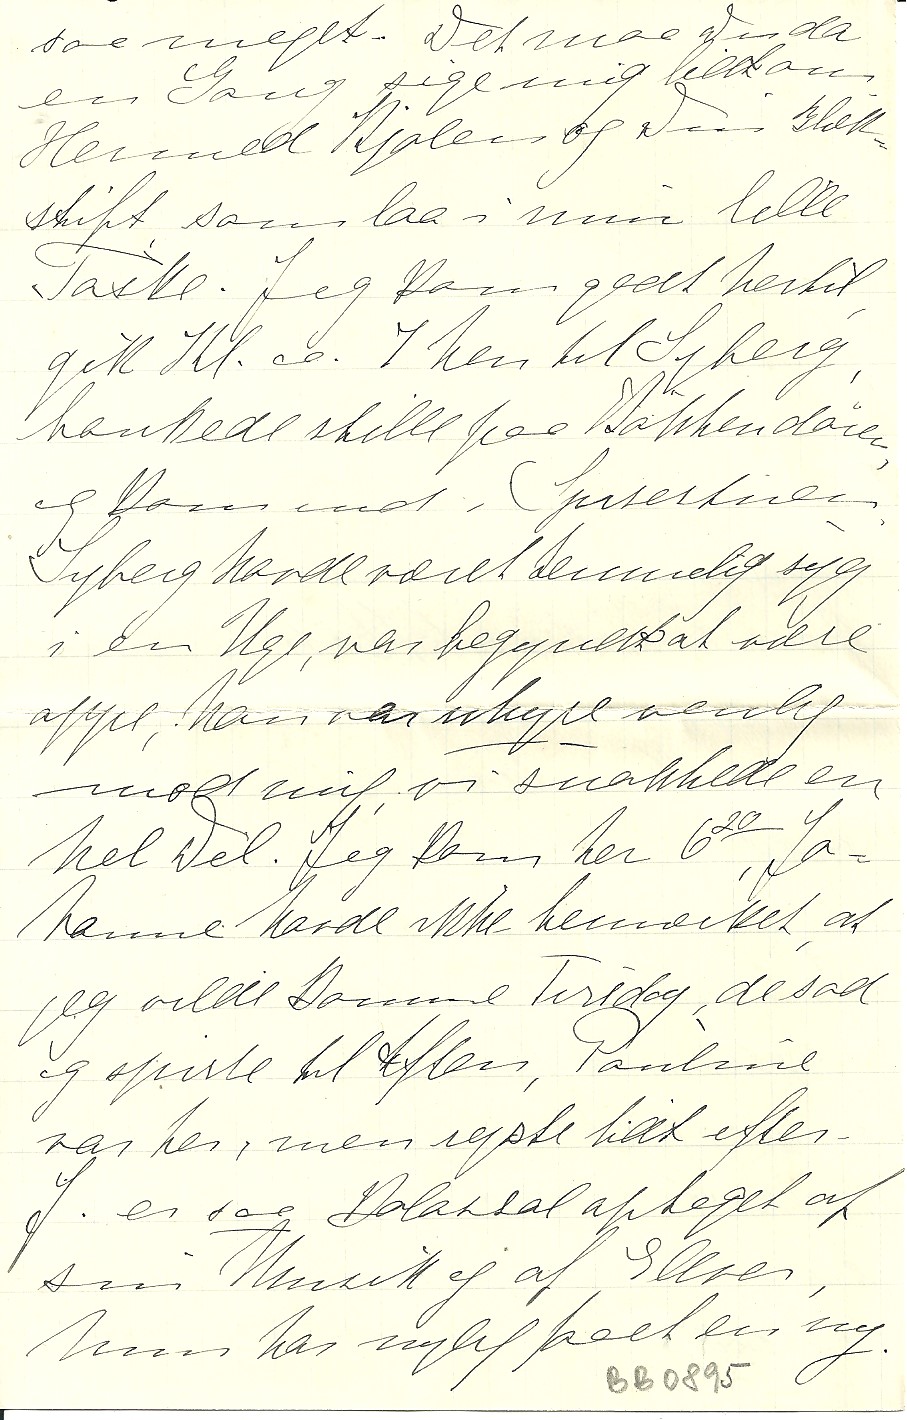 saa meget. Det maa Du da
en Gang sige mig lidt om
Hermed Kjolen og Din Blæk-
stift, som laa i min lille
Taske. Jeg kom godt hertil,
gik Kl. ca. 7 hen til Syberg,
bankede stille paa Køkkendøren,
og kom ind i Spisestuen,
Syberg havde været temmelig syg
i en Uge, var begyndt at være
oppe, han var uhyre venlig
mod mig, vi snakkede en
hel Del. Jeg kom her 6 20, Jo-
hanne havde ikke bemærket, at
jeg vilde komme Tirsdag, de sad
og spiste til Aften, Pauline
var her, men rejste lidt efter.
J. er saa kolossal optaget af
sin Musik og af Elever,
hun har nylig faaet en ny.
BB0895